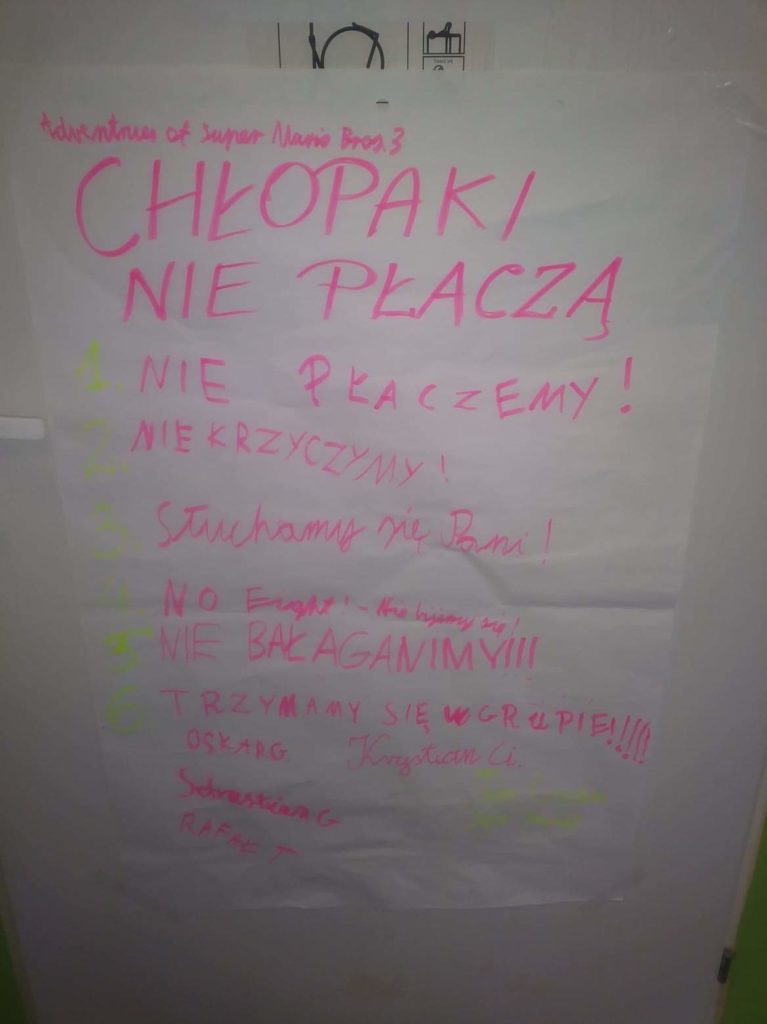 Adventures of Super Mario Bros. 3
CHŁOPAKI
NIE PŁACZĄ
1. NIE PŁACZEMY!
2. NIE KRZYCZYMY!
3. Słuchamy się Pani!
4. NO Enght! - Nie bijemy się!
5 NIE BAŁAGANIMY!!!
6 TRZYMAMY SIĘ W GRUPIE!!!!!
OSKAR G. Krystian Ci.
Sebastian G
RAFAŁ T